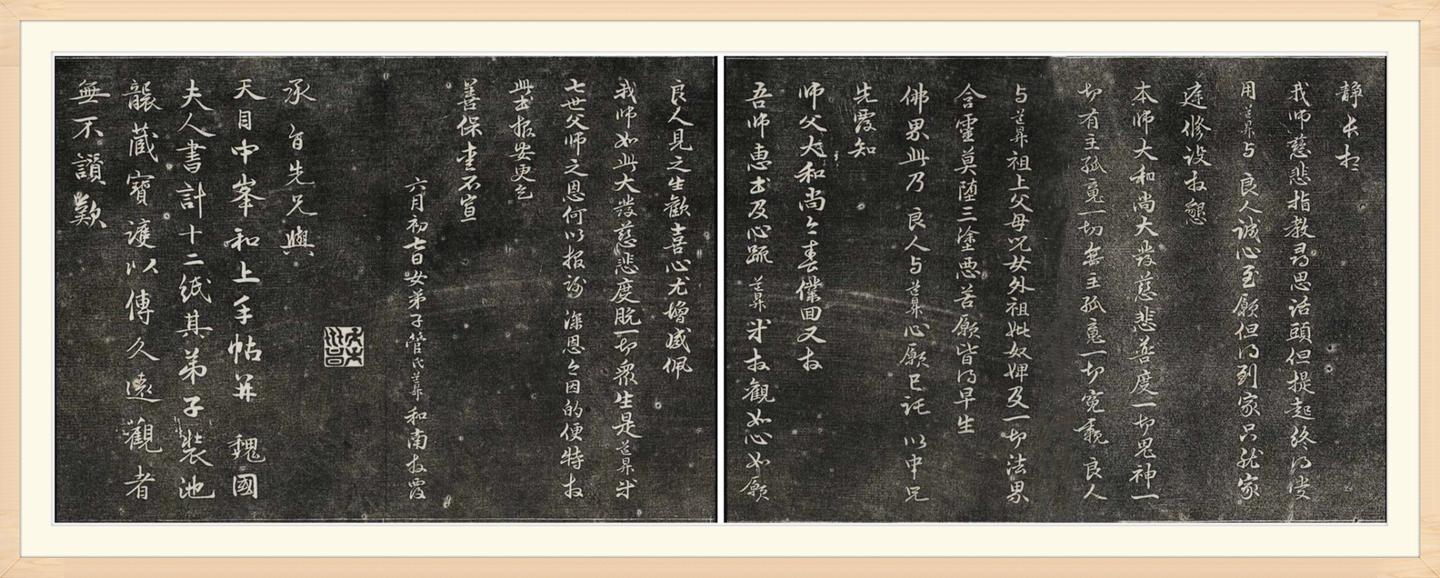 静长老
我师慈悲指教寻思话頭但提起终得受
用道昇与 良人诚心至願但得到家只就家
庭修设拜懇
本师大和尚大发慈悲普度一切鬼神一
切有主孤魂一切無主孤魂一切冤親 良人
与道昇祖上父母児女外祖妣奴婢及一切法界
含靈莫堕三塗恶苦願皆得早生
佛界此乃 良人与道昇心願已託 以中兄
先覆知
师父大和尚今春僕回又拜
吾师惠書及心疏 道昇米拜觀如心如願
良人見之生歡喜心尤增感佩
我师如此大发慈悲度脱一切眾生是道昇米
七世父师之恩何以报
此書报安更乞
善保重不宣
六月初七日女弟子管氏道昇和南拜覆
承旨先兄與
天目中峯和上手帖并 魏國
夫人書計十二纸其弟子装池
襲藏寶護以傳久遠觀者
無不讃歎